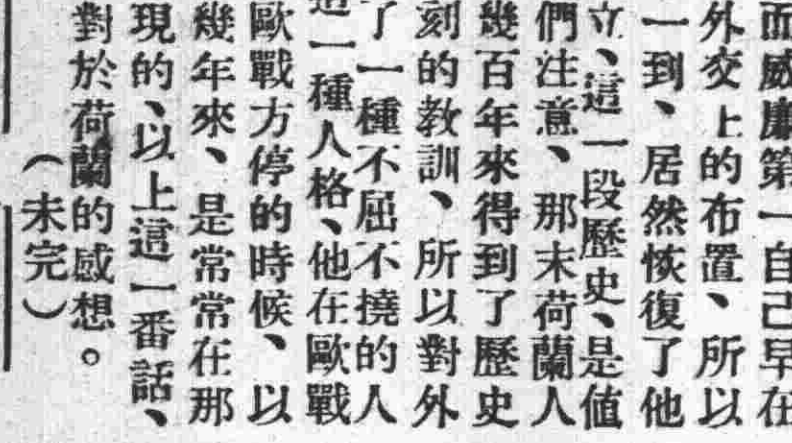 而威廉第一自己早在
外交上的布置、所以
一到、居然恢復了他
立、這一段歷史、是值
們注意、那末荷蘭人
幾百年來得到了歷史
刻的教訓、所以對外
了一種不屈不撓的人
這一種人格、他在歐戰
歐戰方停的時候、以
幾年來、是常常在那
現的、以上這一番話、
對於荷蘭的感想。
（未完）